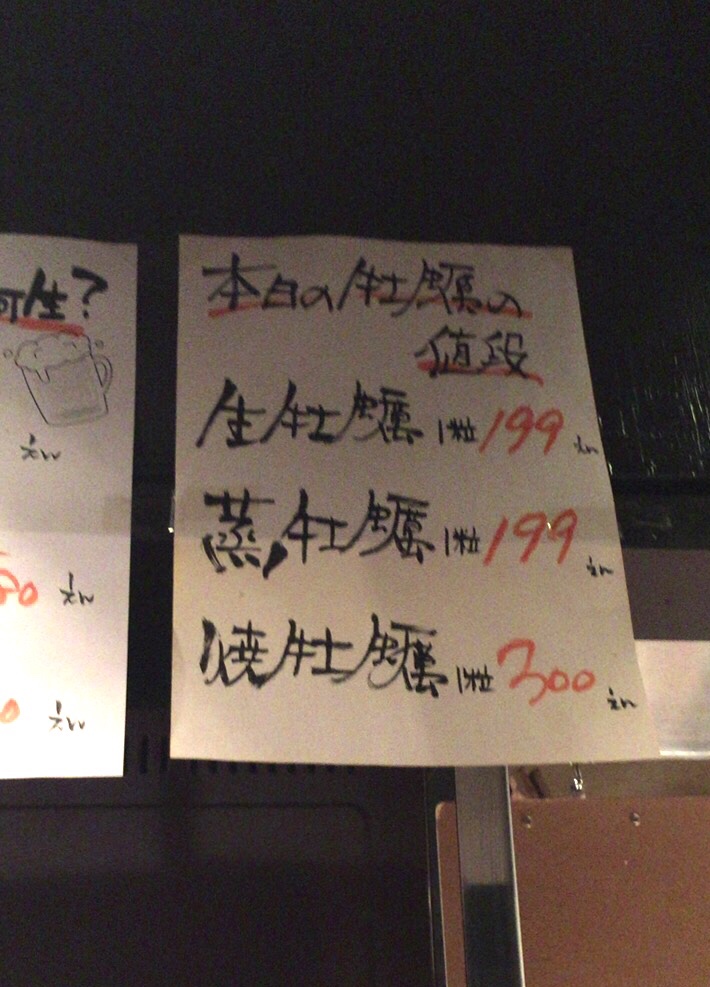 生?
えん
80えん
0えん
本日の牡蠣の
値段
生牡蠣1粒199えん
蒸牡蠣1粒199えん
焼牡蠣1粒300えん